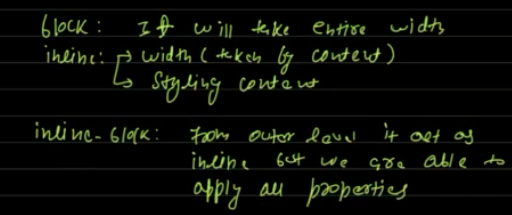 block: It will take entire width
inline: → width (taken by content)
→ Styling content
inline-block: From outer level it act as
inline but we are able to
apply all properties